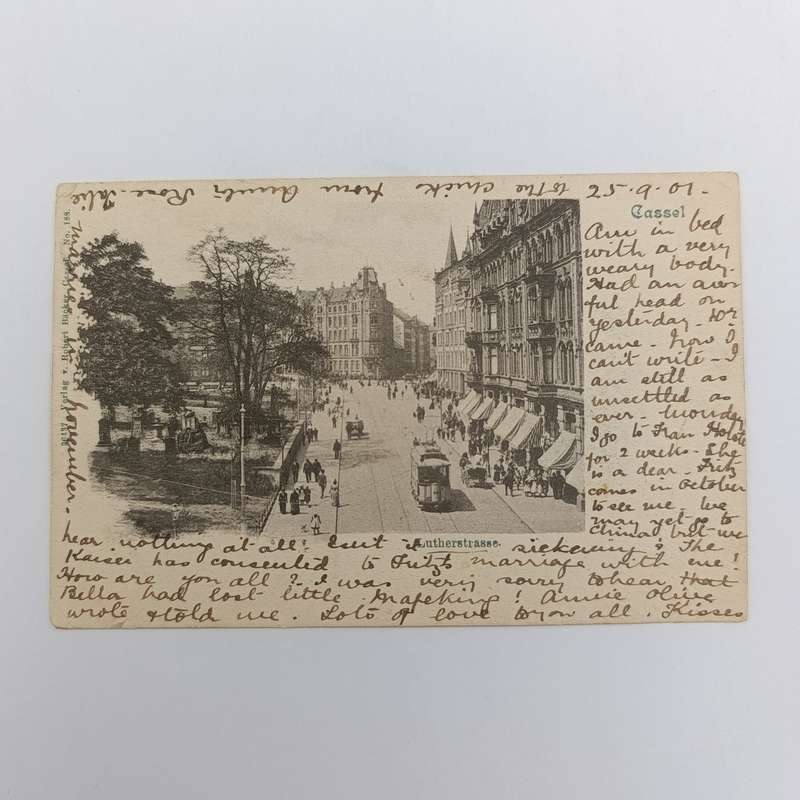 25.9.01.
Cassel
Am in bed
with a very
weary body.
Had an aw
ful head on
yesterday. Dr
came. How I
can't write – I
am still as
unsettled as
ever. Monday
I go to Frau
for 2 weeks. She
is a dear. Fritz
comes in October
to see me. We
may yet go to
China but we
hear nothing at all! Isn't it sickening? The
Kaiser has consented to Fritz's marriage with me!
How are you all? I was very sorry to hear that
Bella had lost little Mafeking! Annie Olive
wrote & told me. Lots of love to you all. Kisses
to the chicks from Aunty Rose.
married November.
Lutherstrasse.
Verlag v. Robert Bücker, Cassel. No. 188.